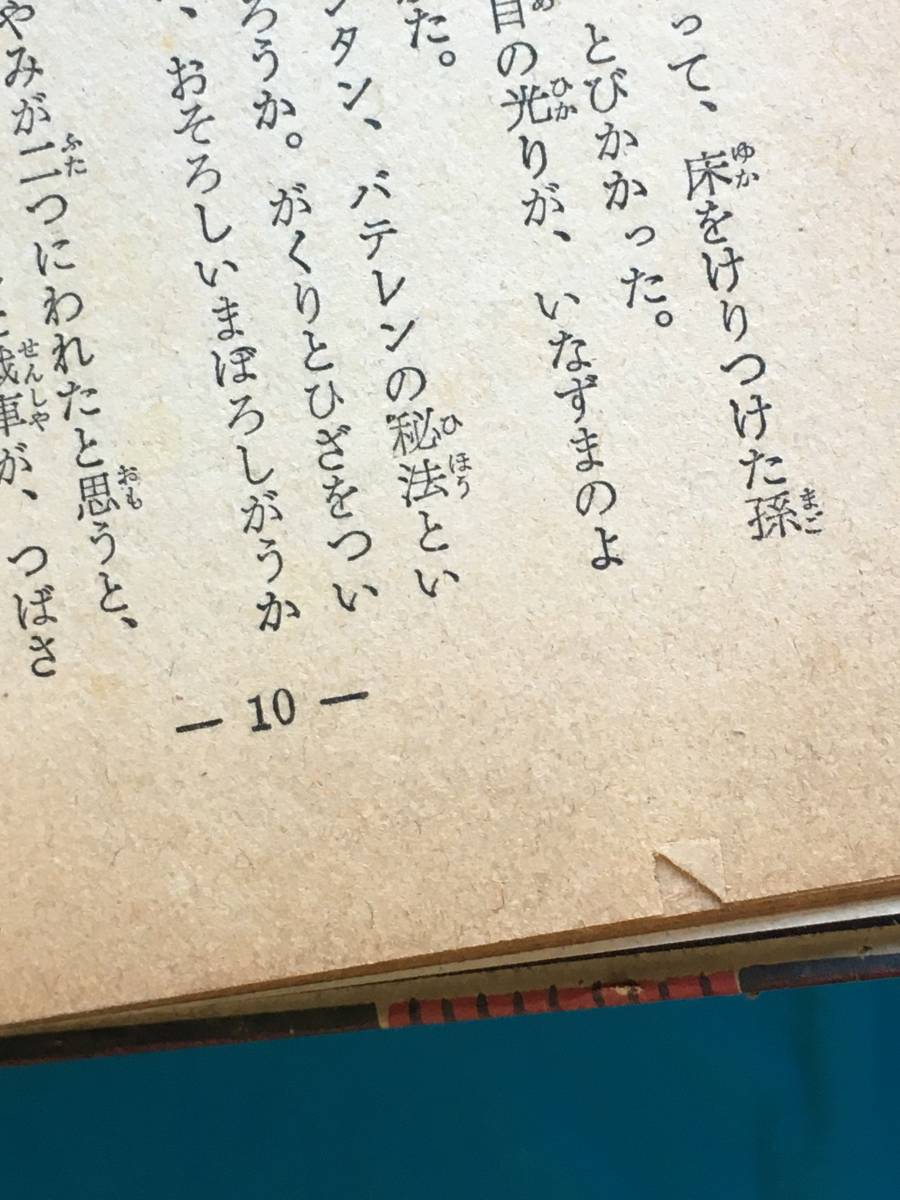 って、床をけりつけた孫
とびかかった。
目の光りが、いなずまのよ
た。
ンタン、バテレンの秘法とい
ろうか。がくりとひざをつい
、おそろしいまぼろしがうか
やみが二つにわれたと思うと、
戦車が、つばさ
— 10 —